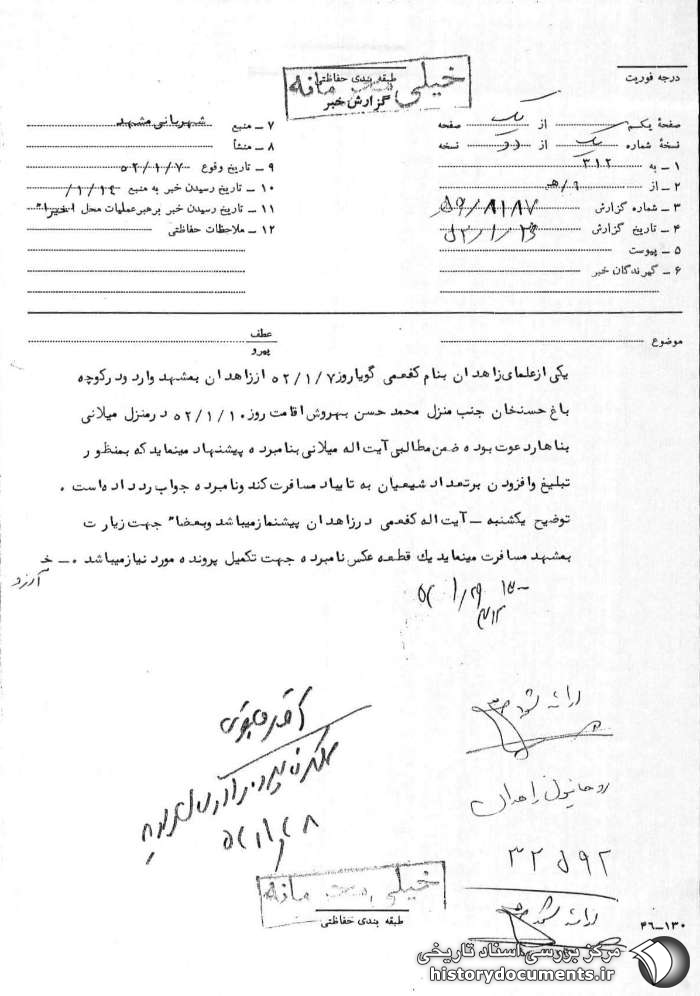 خیلی محرمانه
طبقه بندی حفاظتی
گزارش خبر
درجه فوریت
صفحهٔ یکم از یک صفحه
نسخهٔ شماره یک از دو نسخه
۱ ـ به ۳۱۲
۲ ـ از ۹/هـ
۳ ـ شماره گزارش ۵۹/۸۱۸۷
۴ ـ تاریخ گزارش
۵ ـ پیوست
۶ ـ گیرندگان خبر
۷ ـ منبع شهربانی مشهد
۸ ـ منشأ
۹ ـ تاریخ وقوع ۵۲/۱/۷
۱۰ ـ تاریخ رسیدن خبر به منبع ۱/۱۴/
۱۱ ـ تاریخ رسیدن خبر برهبر عملیات محل اخیرا"
۱۲ ـ ملاحظات حفاظتی
موضوع
عطف
پیرو
یکی ازعلمای زاهدان بنام کفعمی گویاروز ۵۲/۱/۷ اززاهدان بمشهد وارد ودرکوچه
باغ حسنخان جنب منزل محمد حسن بهروش اقامت روز ۵۲/۱/۱۰ درمنزل میلانی
بناهاردعوت بوده ضمن مطالبی آیت اله میلانی بنامبرده پیشنهاد مینماید که بمنظور
تبلیغ وافزودن برتعداد شیعیان به تایباد مسافرت کند ونامبرده جواب رد داده است .
توضیح یکشنبه ـ آیت اله کفعمی درزاهدان پیشنمازمیباشد وبعضا" جهت زیارت
بمشهد مسافرت مینماید یك قطعه عکس نامبرده جهت تکمیل پرونده مورد نیازمیباشد ۰ـ خ
آرزو
۳۱۲
ارائه شود
روحانیون زاهدان
۳۲۵۹۲
ارائه شود
خیلی محرمانه
طبقه بندی حفاظتی
۴۶-۱۳۰
مرکز بررسی اسناد تاریخی
historydocuments.ir